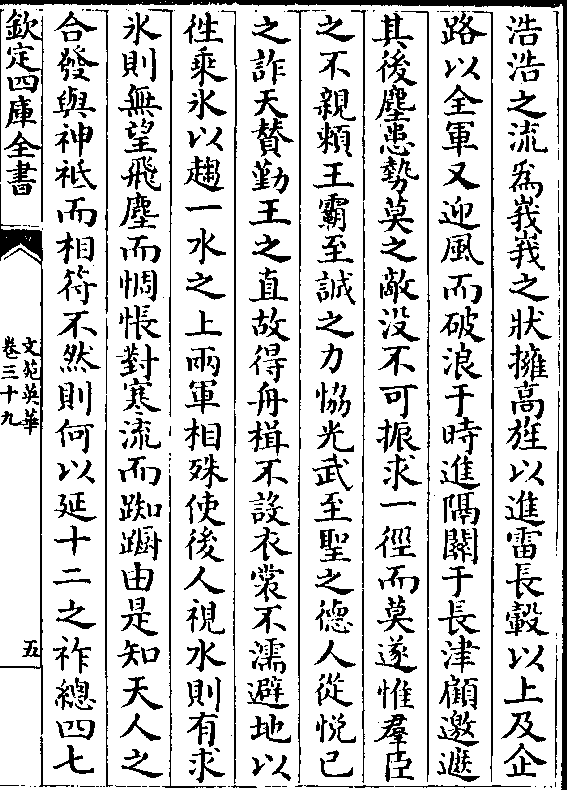 浩浩之流為峩峩之狀擁高旌以進雷長轂以上及企
路以全軍又迎風而破浪于時進隔闗于長津顧邀遮
其後塵患勢莫之敵没不可振求一徑而莫遂惟羣臣
之不親頼王霸至誠之力恊光武至聖之德人從悦已
之詐天賛勤王之直故得舟楫不設衣裳不濡避地以
徃乘氷以趨一水之上兩軍相殊使後人視水則有求
氷則無望飛塵而惆悵對寒流而踟蹰由是知天人之
合發與神祗而相符不然則何以延十二之祚總四七
欽定四庫全書
文苑英華
卷三十九
五